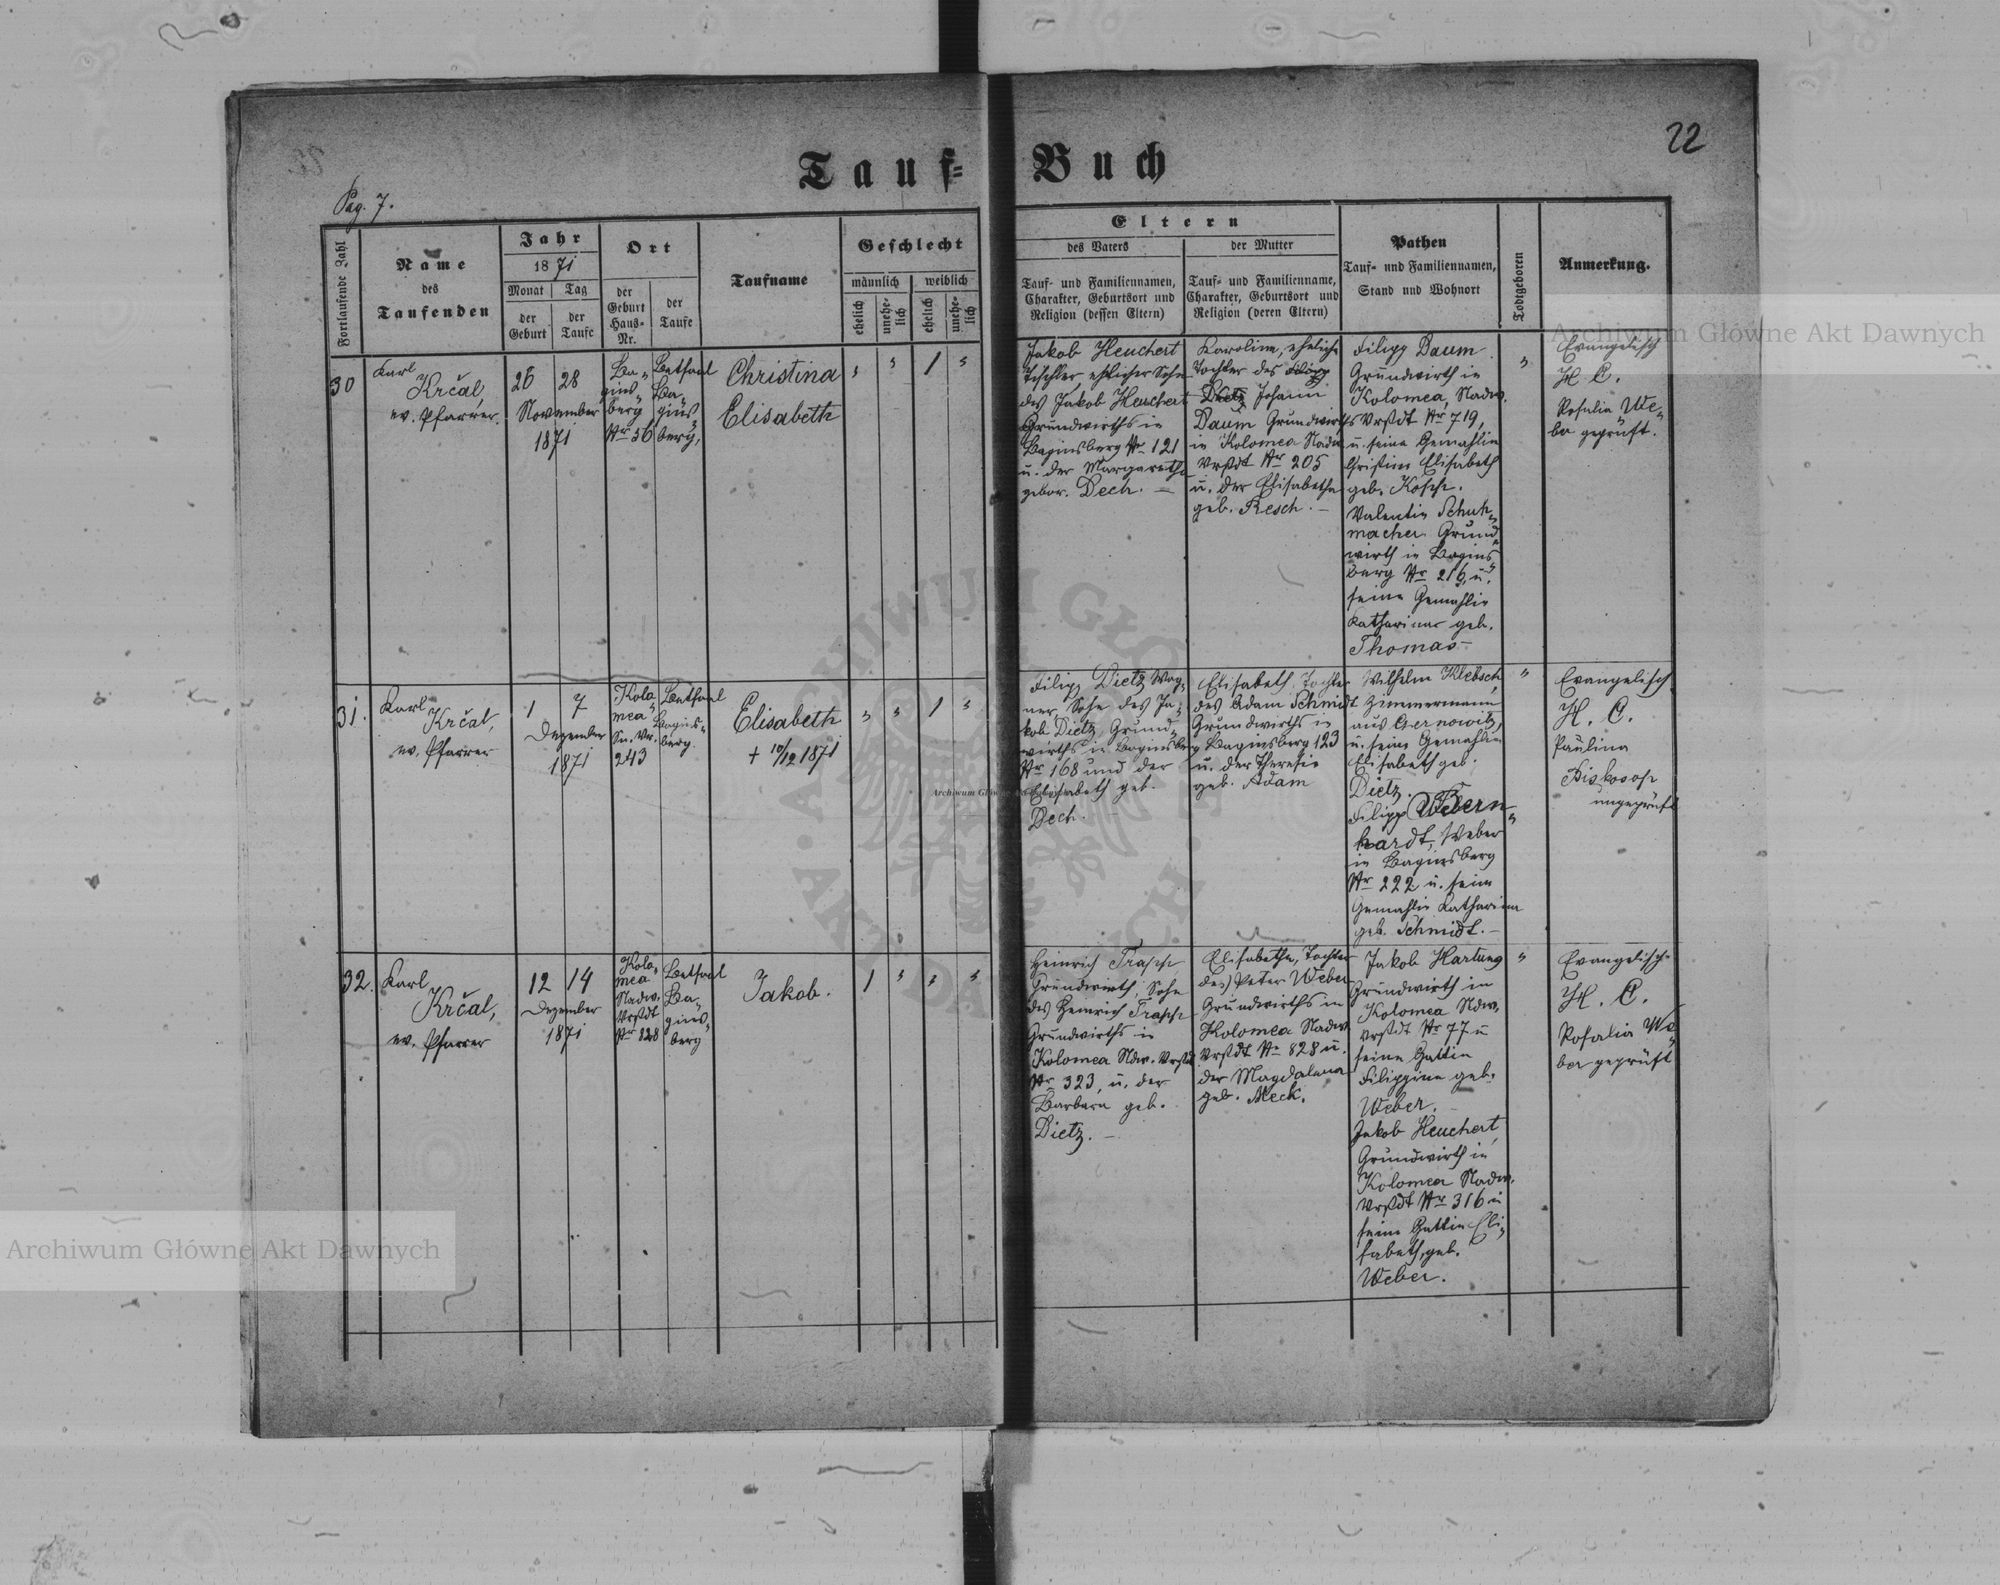 22
Tauf= Buch
Pag. 7.
Fortlaufende Zahl
Name
des
Taufenden
Jahr
1871
Monat Tag
der Geburt
der Taufe
Ort
der
Geburt
Haus=
Nr.
der
Taufe
Taufname
Geschlecht
männlich weiblich
ehelich
unehe=
lich
ehelich
unehe=
lich
Eltern
des Vaters
Tauf- und Familiennamen,
Charakter, Geburtsort und
Religion (dessen Eltern)
der Mutter
Tauf- und Familienname,
Charakter, Geburtsort und
Religion (deren Eltern)
Pathen
Tauf- und Familiennamen,
Stand und Wohnort
Todtgeboren
Anmerkung.
30
Karl
Krčal,
ev. Pfarrer.
26 28
November
1871
Ba=
gins=
berg
Nr 56
Betsaal
Ba=
gins=
berg,
Christina
Elisabeth
1
Jakob Heuchert
Tischler, ehlicher Sohn
des Jakob Heuchert
Grundwirths in
Baginsberg Nr 121
u. der Margaretha
gebor. Dech. —
Karolina, eheliche
Tochter des Filipp
Dietz Johann
Daum Grundwirths
in Kolomea Nadw
Vrstdt Nr 205
u. der Elisabetha
geb. Resch. —
Filipp Daum
Grundwirth in
Kolomea, Nadw.
Vrstdt Nr 719,
u. seine Gemahlin
Christina Elisabeth
geb. Kosche.
Valentin Schuh=
macher Grund=
wirth in Bagins=
berg Nr 216, u.
seine Gemahlin
Katharina geb.
Thomas—
Evangelisch
H. C.
Rosalia We=
ber geprüft.
31.
Karl
Krčal,
ev. Pfarrer
1 7
Dezember
1871
Kolo=
mea
Sn. Vr.
243
Betsaal
Bagins=
berg.
Elisabeth
+ 10/12 1871
1
Filipp Dietz Wag=
ner, Sohn des Ja=
kob Dietz, Grund=
wirths in Baginsberg
Nr 168 und der
Elisabeth geb.
Dech. —
Elisabeth, Tochter
des Adam Schmidt
Grundwirths in
Baginsberg 123
u. der Theresie
geb. Adam
Wilhelm Klebsch,
Zimmermann
aus Czernowitz,
u. seine Gemahlin
Elisabeth geb.
Dietz.
Filipp Bern=
hardt, Weber
in Baginsberg
Nr 222 u. seine
Gemahlin Katharina
geb. Schmidt. —
Evangelisch
H. C.
Paulina
ungeprüft
32.
Karl
Krčal,
ev. Pfarrer
12 14
Dezember
1871
Kolo=
mea
Nadw.
Vrstdt
Nr 828
Betsaal
Ba=
gins=
berg
Jakob.
1
Heinrich Trapp,
Grundwirth, Sohn
des Heinrich Trapp
Grundwirths in
Kolomea Ndw. Vrstdt
Nr 323, u. der
Barbara geb.
Dietz. —
Elisabetha, Tochter
des Peter Weber
Grundwirths in
Kolomea Nadw.
Vrstdt Nr 828 u.
der Magdalena
geb. Meck.
Jakob Hartung
Grundwirth in
Kolomea Ndw.
Vrstdt Nr 77 u
seine Gattin
Filippine geb.
Weber.
Jakob Heuchert,
Grundwirth in
Kolomea Nadw.
Vrstdt Nr 316 u
seine Gattin Eli=
sabeth, geb.
Weber.
Evangelisch
H. C.
Rosalia We=
ber geprüft
Archiwum Główne Akt Dawnych
Archiwum Główne Akt Dawnych